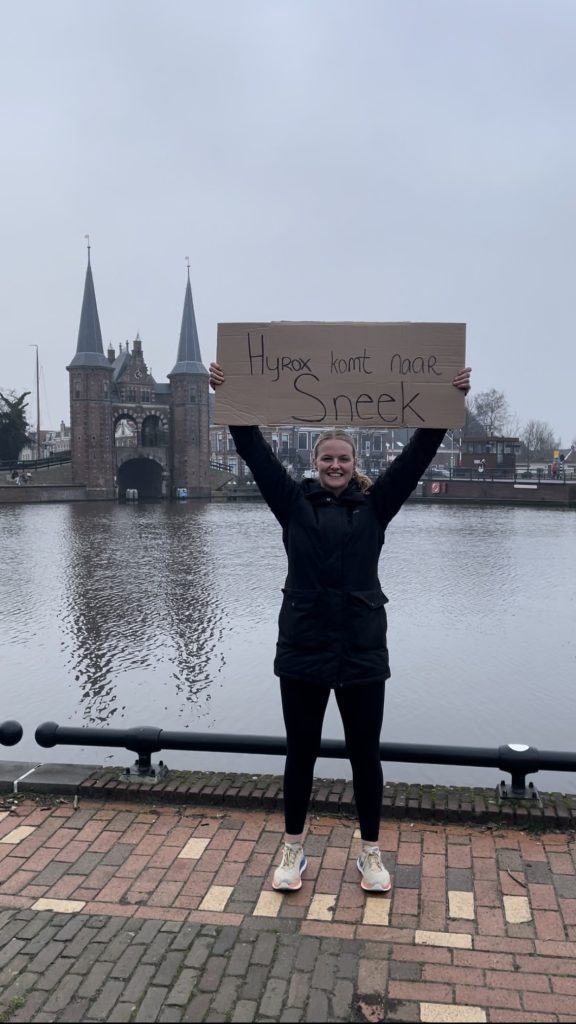 Hyrox komt naar
Sneek